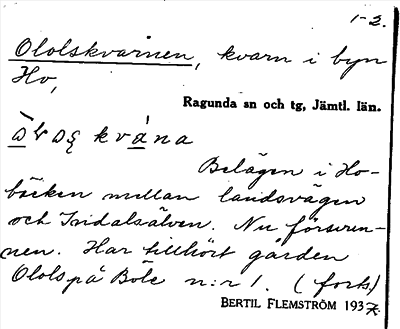 1-2.
Ololskvarnen, kvarn i byn
Ho,
Ragunda sn och tg, Jämtl. län.
kvàna
Belägen i Ho-
bäcken mellan landsvägen
och Indalsälven. Nu försvun-
nen. Har tillhört gården
Olols på Böle n:r 1. (forts.)
BERTIL FLEMSTRÖM 1937.